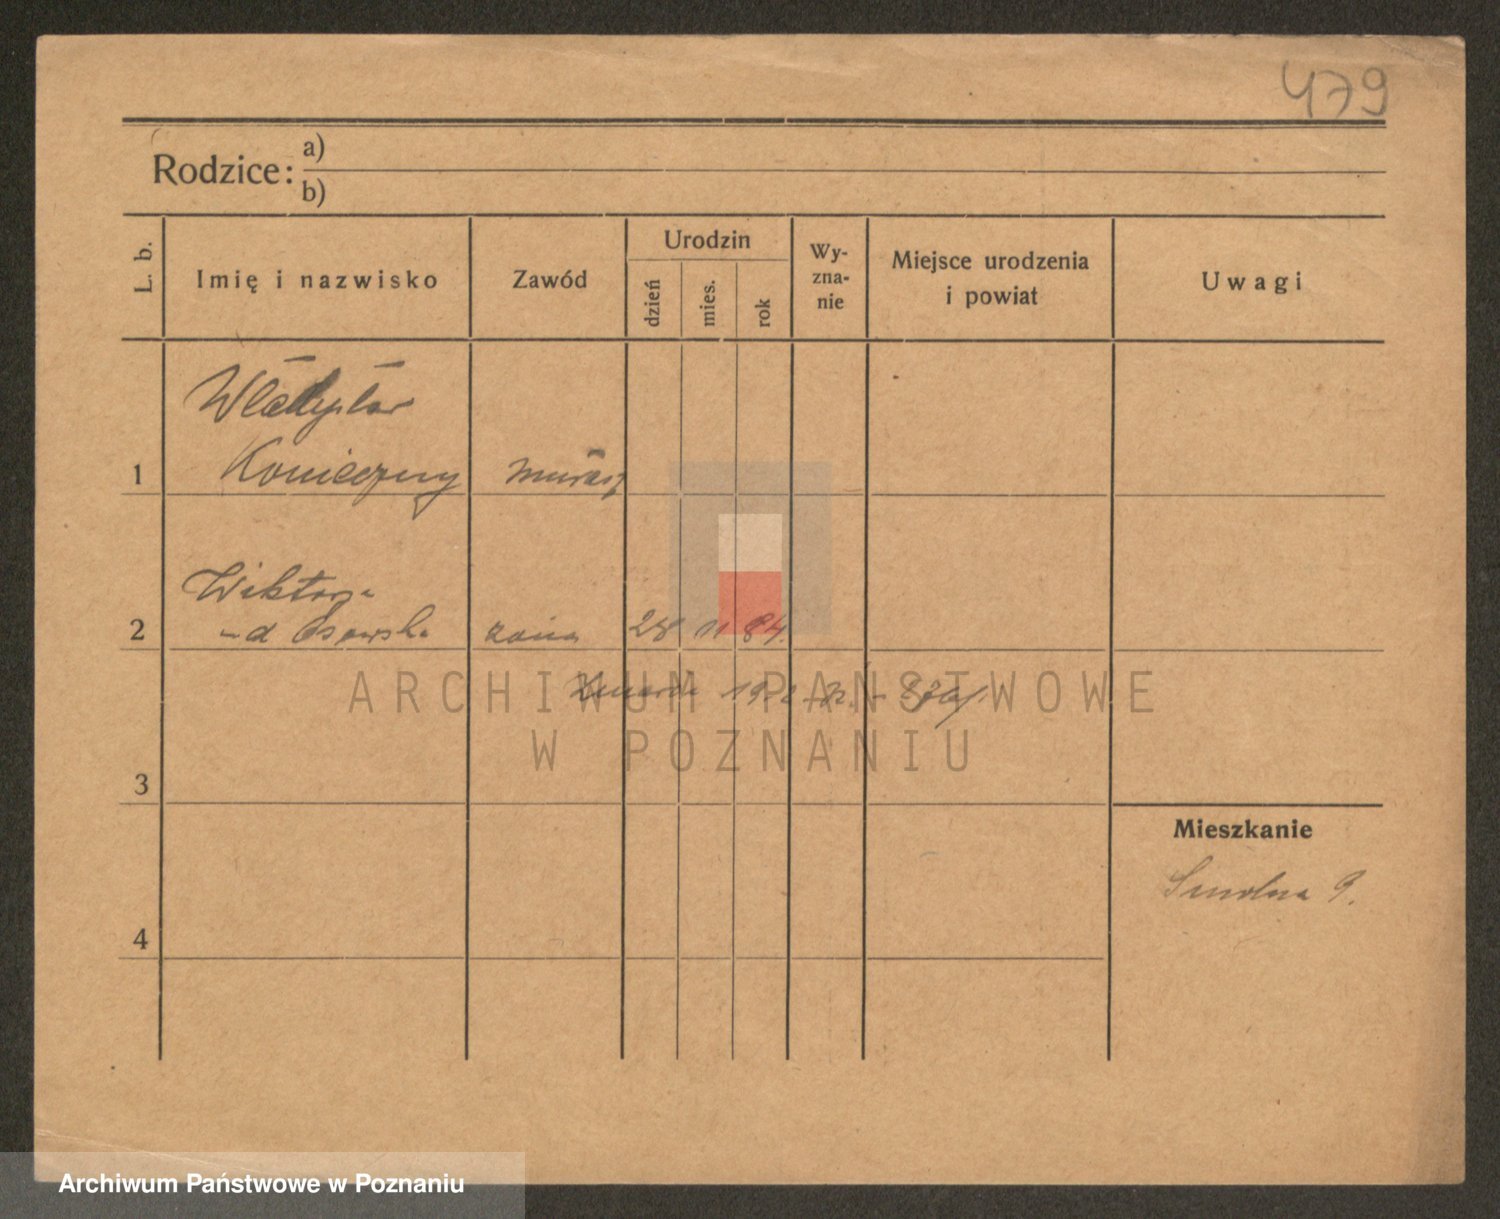 479
Rodzice: a)
b)
L. b.
Imię i nazwisko
Zawód
Urodzin
dzień
mies.
rok
Wy-
zna-
nie
Miejsce urodzenia
i powiat
Uwagi
Władysław
1 Konieczny murarz
Wiktorja
2 Osowska żona 28 11 84.
Zmarła
3
Mieszkanie
Smolna 9.
4
ARCHIWUM PAŃSTWOWE
W POZNANIU
Archiwum Państwowe w Poznaniu